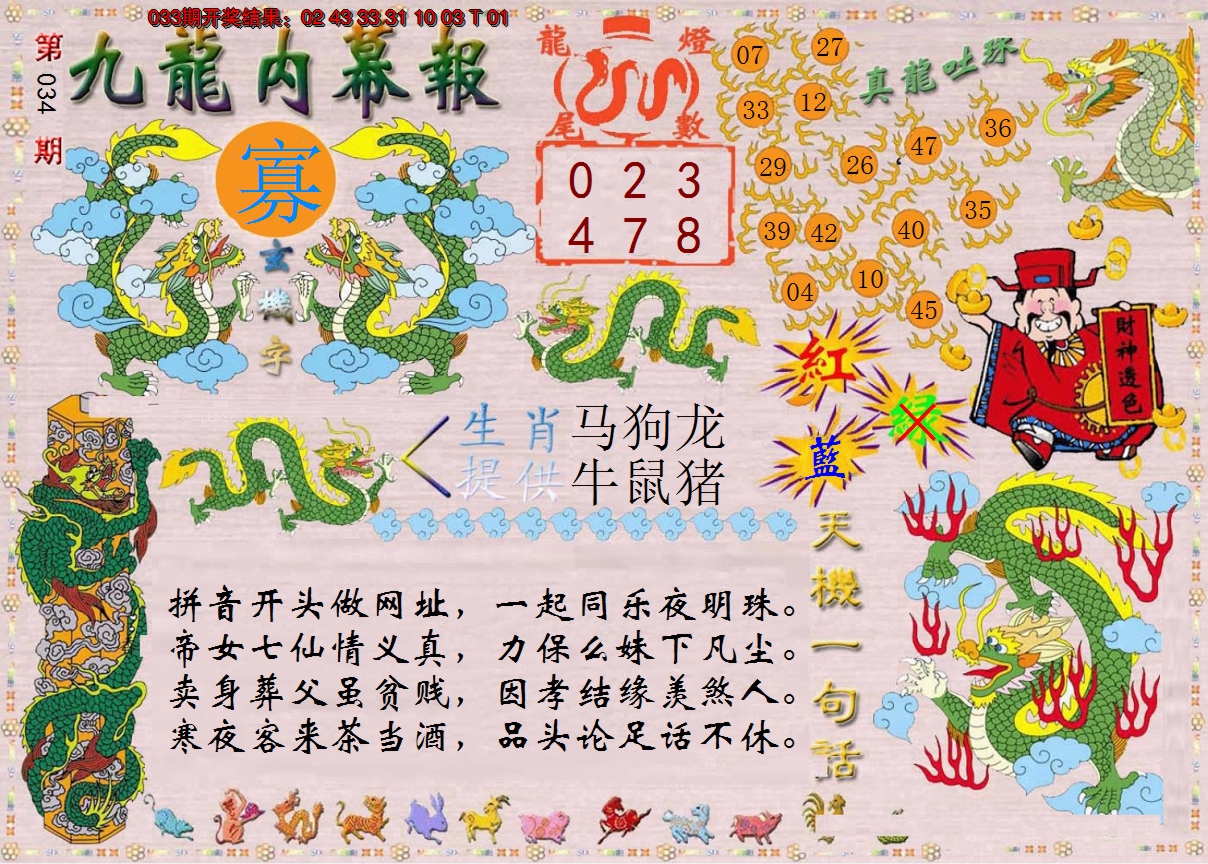 033期开奖结果：02 43 33 31 10 03 T 01
第034期
九龍内幕報
寡
玄機字
龍燈
尾數
0 2 3
4 7 8
真龍吐珠
07 27
33 12
29 26 47 36
39 42 40 35
04 10 45
財神透色
紅 绿
藍
生肖 马狗龙
提供 牛鼠猪
天機一句話
拼音开头做网址，一起同乐夜明珠。
帝女七仙情义真，力保么妹下凡尘。
卖身葬父虽贫贱，因孝结缘羡煞人。
寒夜客来茶当酒，品头论足话不休。